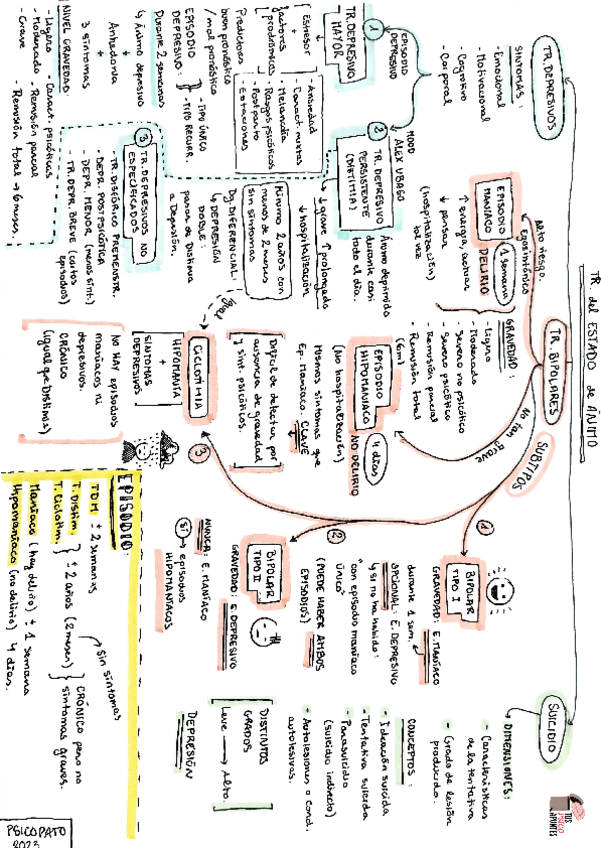 TR. del ESTADO de ÁNIMO
TR. DEPRESIVOS
SÍNTOMAS:
- Emocional
- Motivacional
- Cognitivo
- Corporal
EPISODIO
DEPRESIVO
MOOD
ALEX UBAGO
1
TR. DEPRESIVO
MAYOR
↓ Estresor
factores
prodrómicos
Predictores
buen pronóstico
/mal pronóstico
- Ansiedad
- Caract. mixtas
- Melancolía
- Rasgos psicóticos
- Postparto
- Estaciones
EPISODIO
DEPRESIVO:
- TIPO ÚNICO
- TIPO RECURR.
Durante 2 semanas
↳ Ánimo depresivo
+
Anhedonia
+
3 síntomas
NIVEL GRAVEDAD
- Ligero
- Moderado
- Grave
- Caract. psicóticas
- Remisión parcial
- Remisión total → 6 meses.
2
TR. DEPRESIVO
PERSISTENTE
(DISTIMIA)
Ánimo deprimido
durante casi
todo el día.
↓ grave ↑ prolongado
↓ hospitalización
Mínimo 2 años con
menos de 2 meses
sin síntomas
Dg. DIFERENCIAL:
↳ DEPRESIÓN
DOBLE:
pasa de Distimia
a Depresión.
3
TR. DEPRESIVOS NO
ESPECIFICADOS
- TR. DISFÓRICO PREMENSTR.
- DEPR. POSTPSICÓTICA
- DEPR. MENOR (menos sínt.)
- TR. DEPR. BREVE (cortos
episodios)
TR. BIPOLARES
Alto riesgo.
Egosintónico
EPISODIO
MANÍACO
1 semana
DELIRIO
↑ energía, actuar
↓ pensar
(hospitalización)
tal vez
GRAVEDAD:
- Ligero
- Moderado
- Severo no psicótico
- Severo psicótico
- Remisión parcial
- Remisión total
(6m)
No tan grave
EPISODIO
HIPOMANIACO
4 días
NO DELIRIO
(No hospitalización)
Mismos síntomas que
Ep. Maníaco. CLAVE
Difícil de detectar por
ausencia de gravedad
y sínt. psicóticos.
SUBTIPOS
1
BIPOLAR
TIPO I
GRAVEDAD: E. MANÍACO
durante 1 sem.
OPCIONAL: E. DEPRESIVO
↳ si no ha habido:
"con episodio maníaco
único"
(PUEDE HABER AMBOS
EPISODIOS)
2
BIPOLAR
TIPO II
GRAVEDAD: E. DEPRESIVO
NUNCA: E. MANÍACO
sí → episodios
HIPOMANÍACOS
3
igual
CICLOTIMIA
HIPOMANÍA
+
SÍNTOMAS
DEPRESIVOS
No HAY episodios
maníacos ni
depresivos.
CRÓNICO
(igual que Distimia)
SUICIDIO
→ DIMENSIONES:
- Características
de la tentativa
- Grado de lesión
producido.
CONCEPTOS:
- Ideación suicida
- Tentativa suicida
- Parasuicidio
(suicidio indirecto)
- Autolesiones o cond.
autolesivas.
DISTINTOS
GRADOS
Leve → Alto.
DEPRESIÓN
EPISODIO:
TDM ± 2 semanas
Sin síntomas
T. Distim.
T. Ciclotim.
± 2 años (2 meses)
CRÓNICO pero no
síntomas graves.
Maníaco (hay delirio) ± 1 semana
Hipomaníaco (no delirio) 4 días.
TUS
PSICO
APUNTES
PSICOPATO
2023